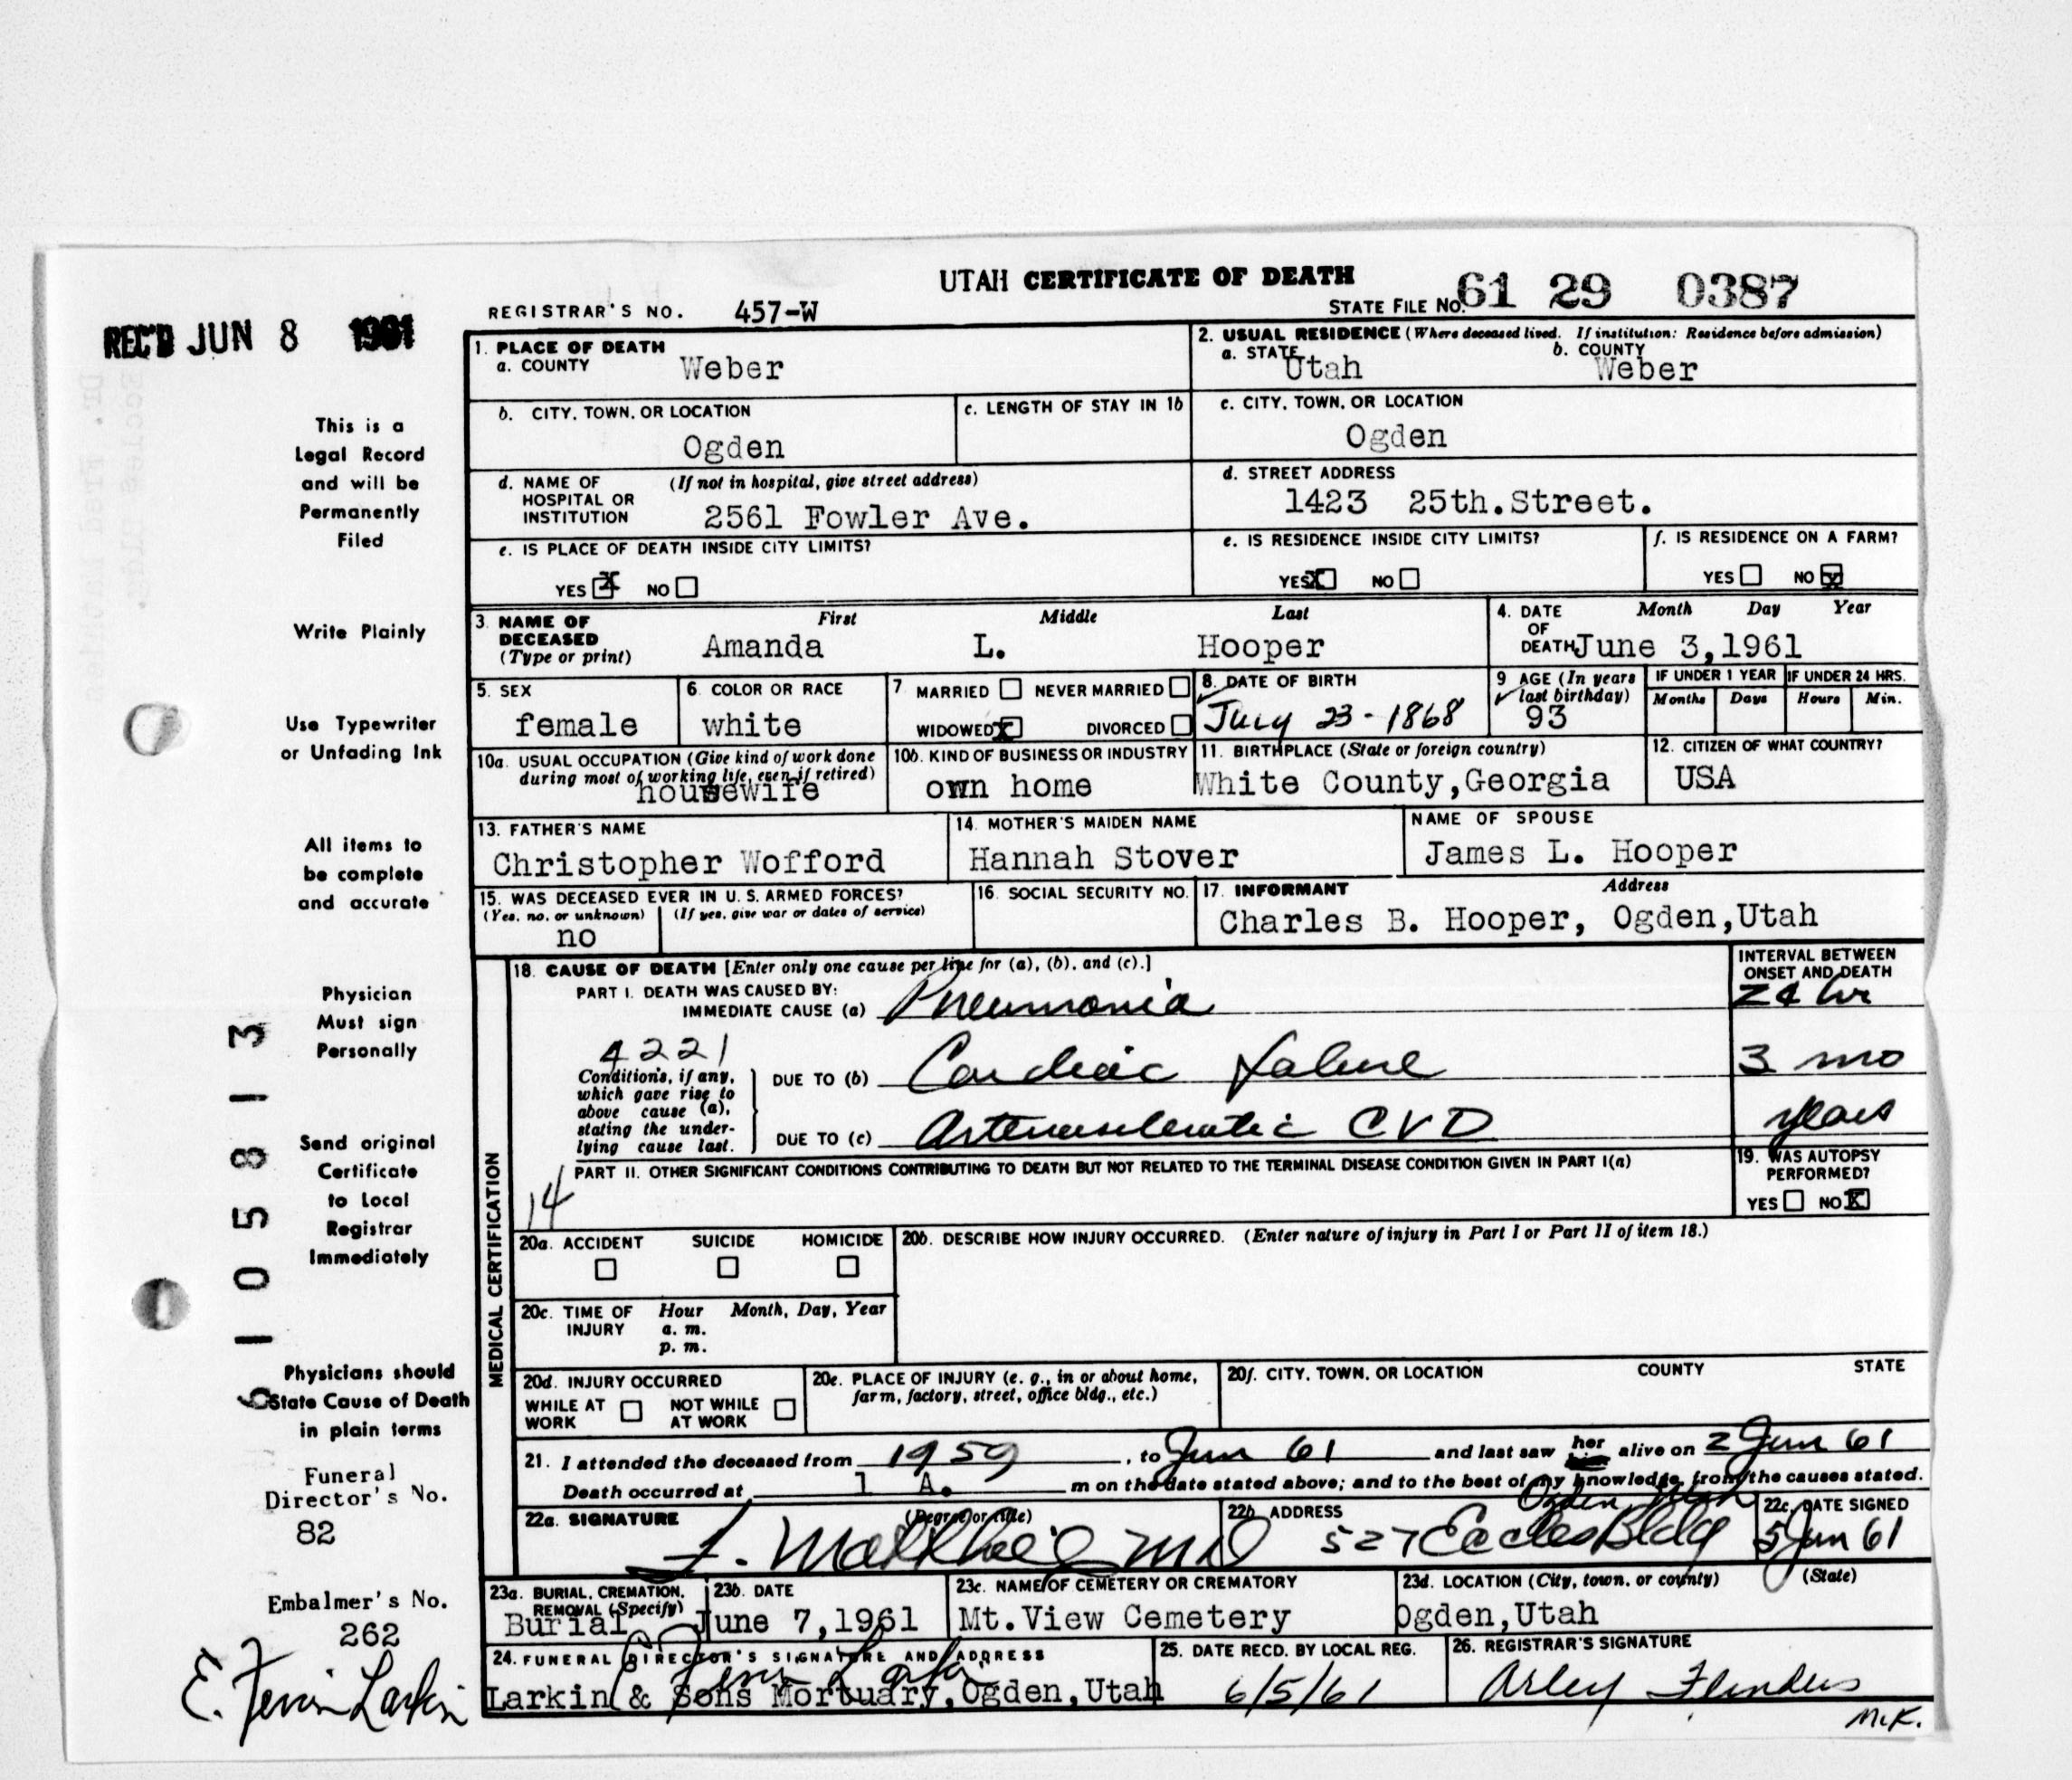 UTAH CERTIFICATE OF DEATH
STATE FILE NO. 61 29 0387
REGISTRAR'S NO. 457-W
REC'D JUN 8 1961
This is a
Legal Record
and will be
Permanently
Filed
Write Plainly
Use Typewriter
or Unfading Ink
All items to
be complete
and accurate
Physician
Must sign
Personally
Send original
Certificate
to Local
Registrar
Immediately
Physicians should
State Cause of Death
in plain terms
Funeral
Director's No.
82
Embalmer's No.
262
E. Ferrin Larkin
61058113
1. PLACE OF DEATH
a. COUNTY Weber
2. USUAL RESIDENCE (Where deceased lived. If institution: Residence before admission)
a. STATE Utah b. COUNTY Weber
b. CITY, TOWN, OR LOCATION Ogden
c. LENGTH OF STAY IN 1b
c. CITY, TOWN, OR LOCATION Ogden
d. NAME OF HOSPITAL OR INSTITUTION (If not in hospital, give street address) 2561 Fowler Ave.
d. STREET ADDRESS 1423 25th.Street.
e. IS PLACE OF DEATH INSIDE CITY LIMITS?
YES X NO
e. IS RESIDENCE INSIDE CITY LIMITS?
YES X NO
f. IS RESIDENCE ON A FARM?
YES NO X
3. NAME OF DECEASED (Type or print) First Middle Last
Amanda L. Hooper
4. DATE OF DEATH Month Day Year
June 3,1961
5. SEX female
6. COLOR OR RACE white
7. MARRIED NEVER MARRIED
WIDOWED X DIVORCED
8. DATE OF BIRTH July 23-1868
9 AGE (In years last birthday) 93
IF UNDER 1 YEAR Months Days
IF UNDER 24 HRS. Hours Min.
10a. USUAL OCCUPATION (Give kind of work done during most of working life, even if retired) housewife
10b. KIND OF BUSINESS OR INDUSTRY own home
11. BIRTHPLACE (State or foreign country) White County,Georgia
12. CITIZEN OF WHAT COUNTRY? USA
13. FATHER'S NAME Christopher Wofford
14. MOTHER'S MAIDEN NAME Hannah Stover
NAME OF SPOUSE James L. Hooper
15. WAS DECEASED EVER IN U. S. ARMED FORCES?
(Yes, no, or unknown) (If yes, give war or dates of service)
no
16. SOCIAL SECURITY NO.
17. INFORMANT Address
Charles B. Hooper, Ogden,Utah
MEDICAL CERTIFICATION
18. CAUSE OF DEATH [Enter only one cause per line for (a), (b), and (c).]
INTERVAL BETWEEN ONSET AND DEATH
PART I. DEATH WAS CAUSED BY:
IMMEDIATE CAUSE (a) Pneumonia 24 hr
4221
Conditions, if any, which gave rise to above cause (a), stating the underlying cause last.
DUE TO (b) Cardiac Failure 3 mo
DUE TO (c) Arteriosclerotic CVD years
PART II. OTHER SIGNIFICANT CONDITIONS CONTRIBUTING TO DEATH BUT NOT RELATED TO THE TERMINAL DISEASE CONDITION GIVEN IN PART I(a)
14
19. WAS AUTOPSY PERFORMED?
YES NO X
20a. ACCIDENT SUICIDE HOMICIDE
20b. DESCRIBE HOW INJURY OCCURRED. (Enter nature of injury in Part I or Part II of item 18.)
20c. TIME OF INJURY Hour Month, Day, Year
a. m.
p. m.
20d. INJURY OCCURRED
WHILE AT WORK NOT WHILE AT WORK
20e. PLACE OF INJURY (e. g., in or about home, farm, factory, street, office bldg., etc.)
20f. CITY, TOWN, OR LOCATION COUNTY STATE
21. I attended the deceased from 1959, to Jun 61 and last saw her him alive on 2 Jun 61
Death occurred at 1 A. m on the date stated above; and to the best of my knowledge, from the causes stated.
22a. SIGNATURE (Degree or title)
22b. ADDRESS 527 Eccles Bldg Ogden, Utah
22c. DATE SIGNED 5 Jun 61
23a. BURIAL, CREMATION, REMOVAL (Specify) Burial
23b. DATE June 7,1961
23c. NAME OF CEMETERY OR CREMATORY Mt.View Cemetery
23d. LOCATION (City, town, or county) (State) Ogden,Utah
24. FUNERAL DIRECTOR'S SIGNATURE AND ADDRESS
Larkin & Sons Mortuary,Ogden,Utah
25. DATE RECD. BY LOCAL REG. 6/5/61
26. REGISTRAR'S SIGNATURE Arley Flinders
M.K.